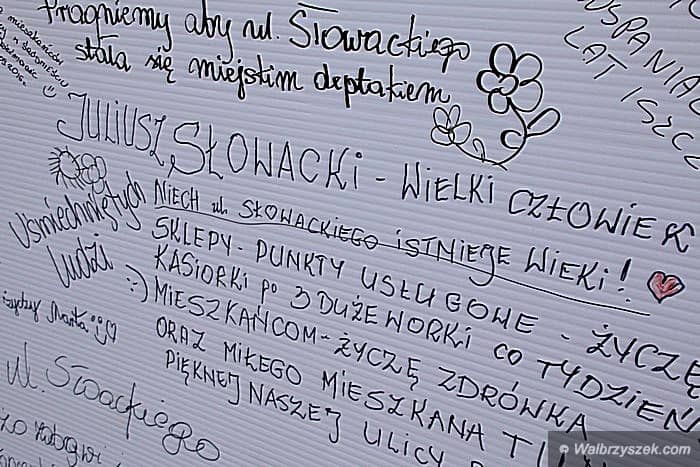 Pragniemy aby ul. Słowackiego
stała się miejskim deptakiem
mieszkańców
SPANIA
LAT
JULIUSZ SŁOWACKI - WIELKI CZŁOWIEK
NIECH ul. SŁOWACKIEGO ISTNIEJE WIEKI!
SKLEPY - PUNKTY USŁUGOWE - ŻYCZĘ
KASIORKI po 3 DUŻE WORKI CO TYDZIEŃ
:-) MIESZKAŃCOM - ŻYCZĘ ZDRÓWKA
ORAZ MIŁEGO MIESZKANA
PIĘKNEJ NASZEJ ULICY
Uśmiechniętych
ludzi
życzy Marta
ul. Słowackiego
© Walbrzyszek.com